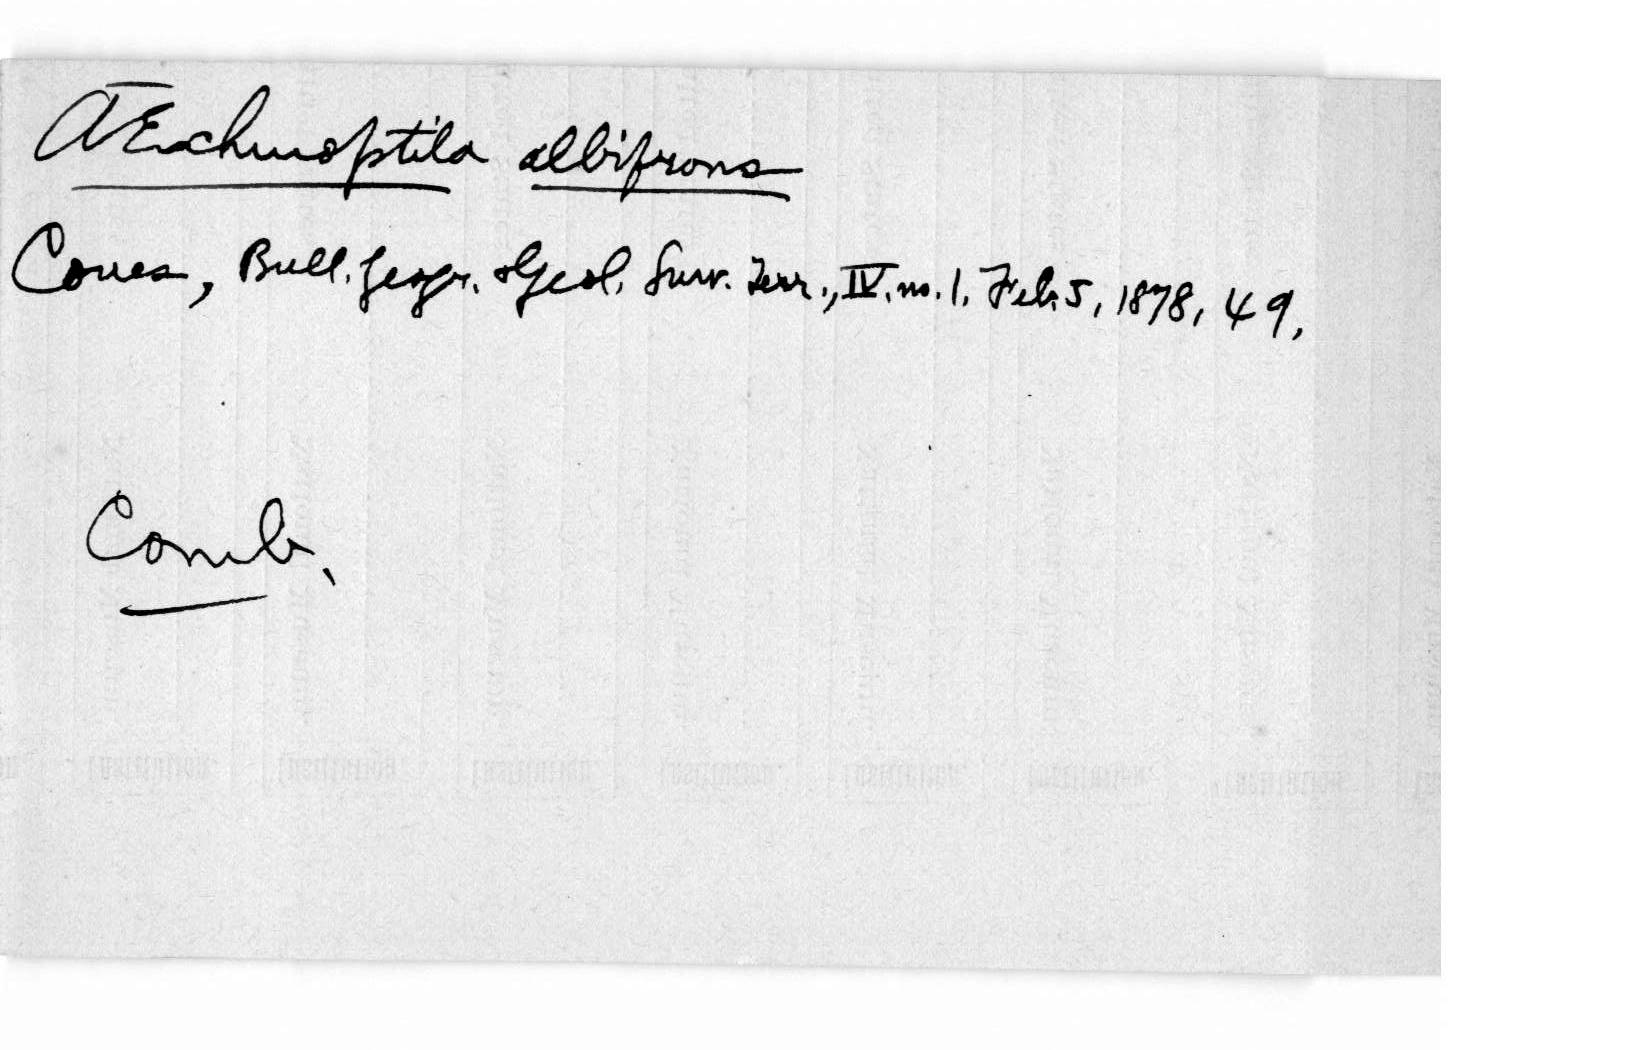 Æchmoptila albifrons
Coues, Bull. Geogr. & Geol. Surv. Terr., IV. no. 1. Feb. 5, 1878, 49,
Comb.